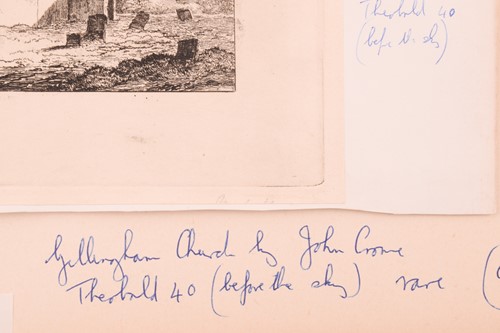 Theobald 40
(before the sky)
Gillingham Church by John Crome
Theobald 40 (before the sky) rare (